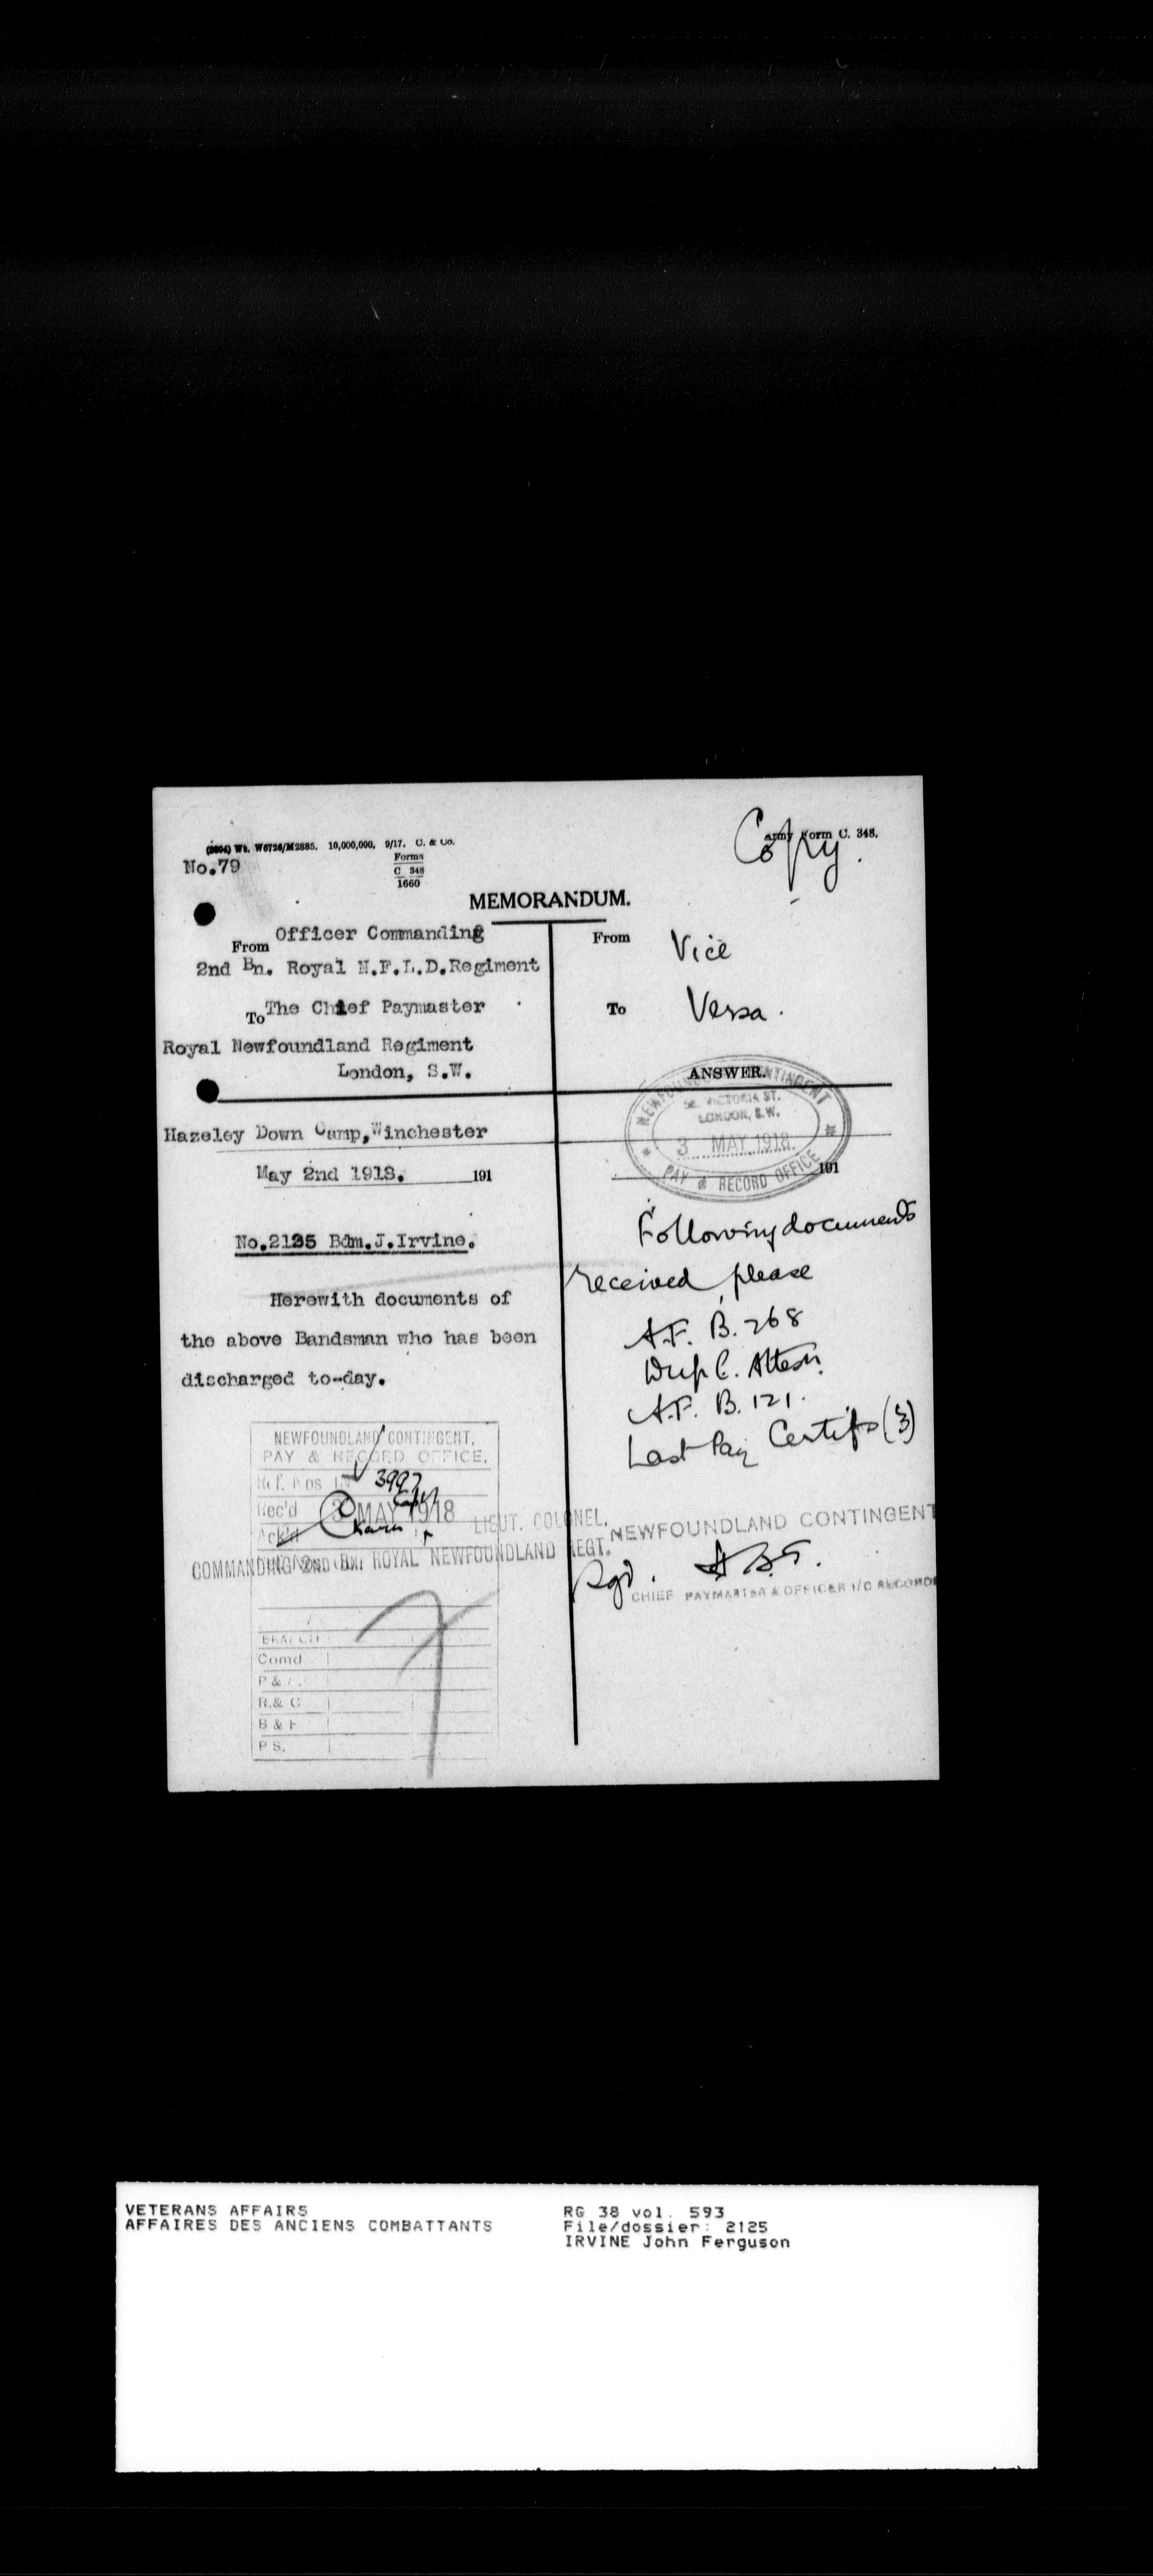 Copy.
Army Form C. 348.
(2604) Wt. W6726/M2885. 10,000,000. 9/17. C. & Co.
No.79
Forms
C 348
1660
MEMORANDUM.
From Officer Commanding
2nd Bn. Royal N.F.L.D.Regiment
To The Chief Paymaster
Royal Newfoundland Regiment
London, S.W.
Hazeley Down Camp,Winchester
May 2nd 1918. 191
No.2125 Bdm.J.Irvine.
Herewith documents of
the above Bandsman who has been
discharged to-day.
NEWFOUNDLAND CONTINGENT,
PAY & RECORD OFFICE.
Ref. Nos 3997
Rec'd 3 MAY 1918
Ack'd
LIEUT. COLONEL.
COMMANDING 2ND BN. ROYAL NEWFOUNDLAND REGT.
BRANCH
Comd
P & A
R.& C
B & F
P S.
From Vice
To Versa.
ANSWER.
NEWFOUNDLAND CONTINGENT
58, VICTORIA ST.
LONDON, S.W.
3 MAY 1918.
PAY & RECORD OFFICE
191
Following documents
received, please
A.F. B. 268
Dup C. Attesn.
A.F. B. 121.
Last Pay Certifs (3)
NEWFOUNDLAND CONTINGENT
Sgd.
CHIEF PAYMASTER & OFFICER I/C RECORDS
VETERANS AFFAIRS
AFFAIRES DES ANCIENS COMBATTANTS
RG 38 vol. 593
File/dossier: 2125
IRVINE John Ferguson